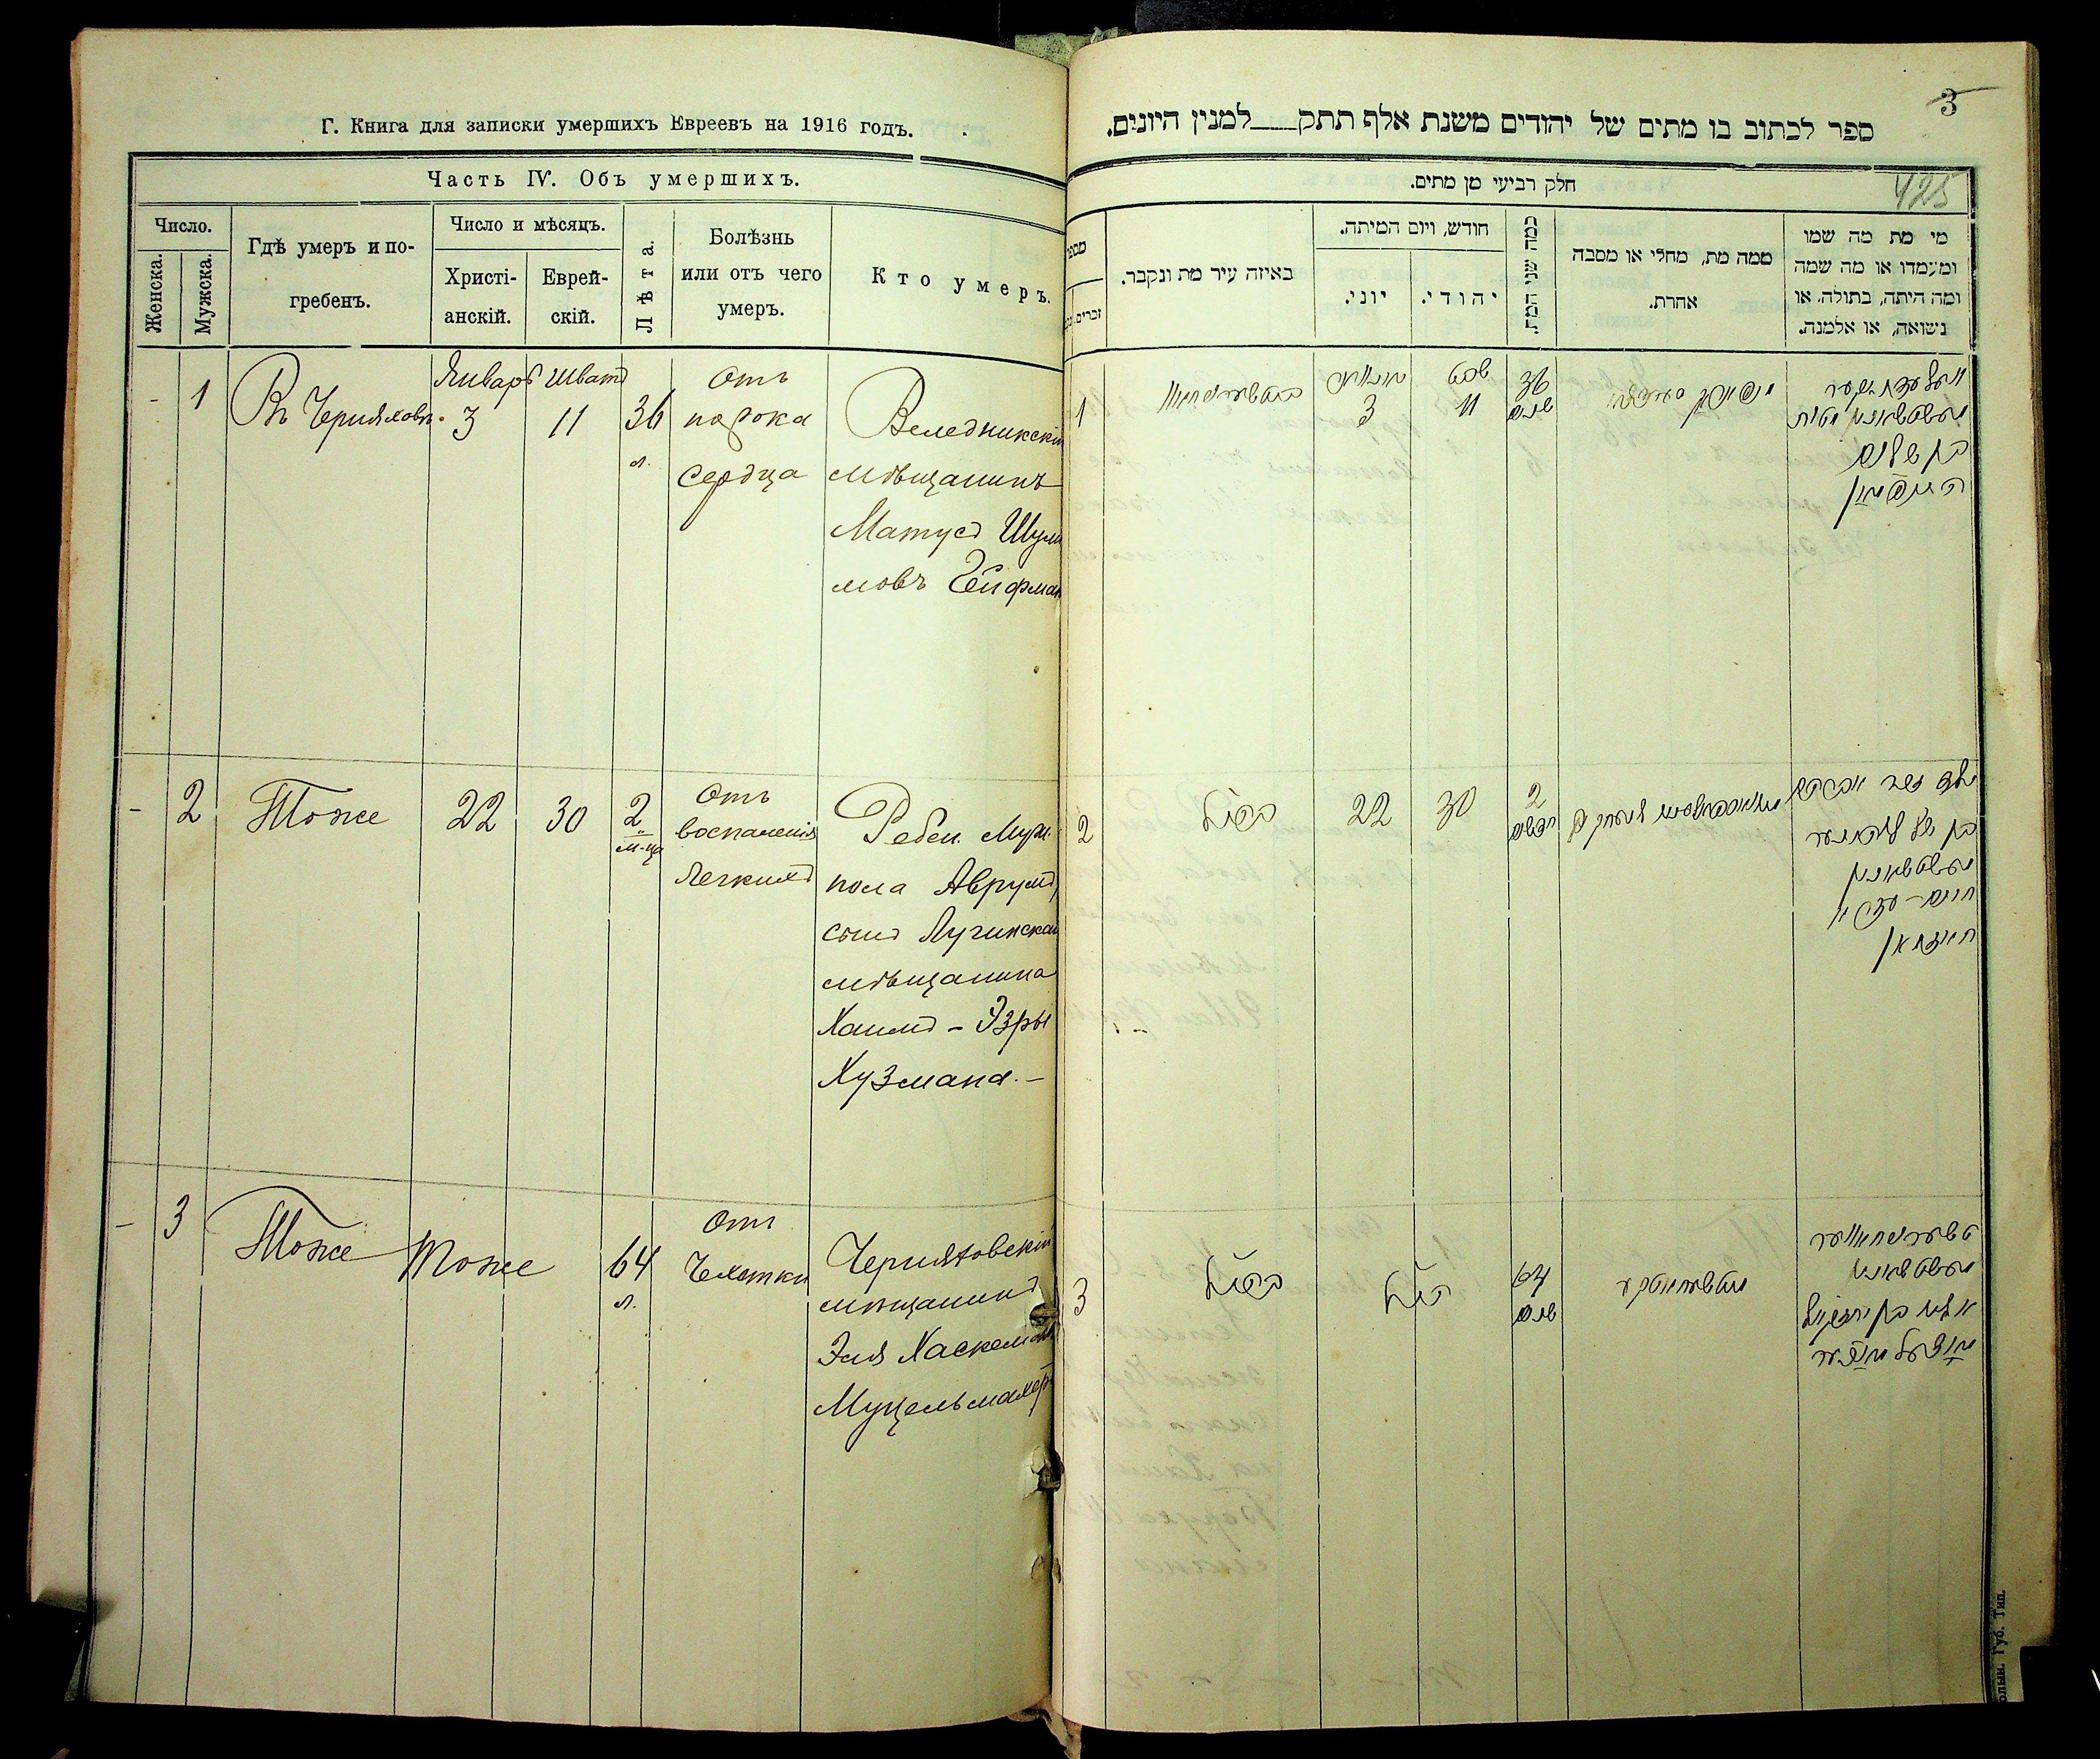 Г. Книга для записки умершихъ Евреевъ на 1916 годъ.
Часть IV. Объ умершихъ.
Число.
Женска.
Мужска.
Гдѣ умеръ и по-
гребенъ.
Число и мѣсяцъ.
Христі-
анскій.
Еврей-
скій.
Лѣта.
Болѣзнь
или отъ чего
умеръ.
Кто умеръ.
-
1
Въ Черняховѣ
Январь
3
Шватъ
11
36
л.
отъ
порока
сердца
Веледникскій
мѣщанинъ
Матусъ Шули
мовъ Гейфман
-
2
Тоже
22
30
2
м-ца
отъ
воспаленія
легкихъ
Ребен. Муж.
пола Аврумъ,
сынъ Лугинскаго
мѣщанина
Хаимъ-Эзры
Хузмана.-
-
3
Тоже
Тоже
64
л.
отъ
Чахотки
Черняховскій
мѣщанинъ
Эля Хаскелев
Муцельмахер
3
425
ספר לכתוב בו מתים של יהודים משנת אלף תתק___למנין היונים.
חלק רביעי מן מתים.
מספר
זכרים.
באיזה עיר מת ונקבר.
חודש, ויום המיתה.
יוני.
יהודי.
כמה שני המת.
ממה מת, מחלי או מסבה
אחרת.
מי מת מה שמו
ומעמדו או מה שמה
ומה היתה, בתולה. או
נשואה, או אלמנה.
1
3
שבט
11
36
שנים
בן שלום
הייפמאן
2
כנ״ל
22
30
2
חדשים
חיים-עזרא
חוזמאן
3
כנ״ל
הנ״ל
64
שנים
אליא בן יחזקאל
олын. Губ. Тип.